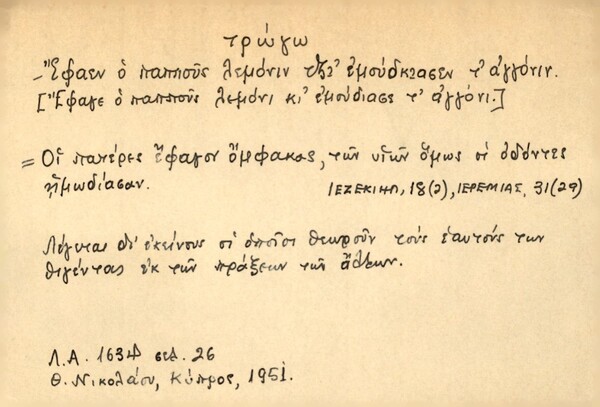 τρώγω
–Ἔφαεν ὁ παπποῦς λεμόνιν τζ̌ι' ἐμούδκιασεν τ' ἀγγόνιν.
[Ἔφαγε ὁ παπποῦς λεμόνι κι' ἐμούδιασε τ' ἀγγόνι.]
= Οἱ πατέρες ἔφαγον ὄμφακας, τῶν υἱῶν ὅμως οἱ ὀδόντες
ἡμωδίασαν. ΙΕΖΕΚΙΗΛ, 18(2), ΙΕΡΕΜΙΑΣ, 31(29)
Λέγεται δι' ἐκείνους οἱ ὁποῖοι θεωροῦν τοὺς ἑαυτούς των
θιγέντας ἐκ τῶν πράξεων τῶν ἄλλων.
Λ.Α. 1634 σελ. 26
Θ. Νικολάου, Κύπρος, 1951.